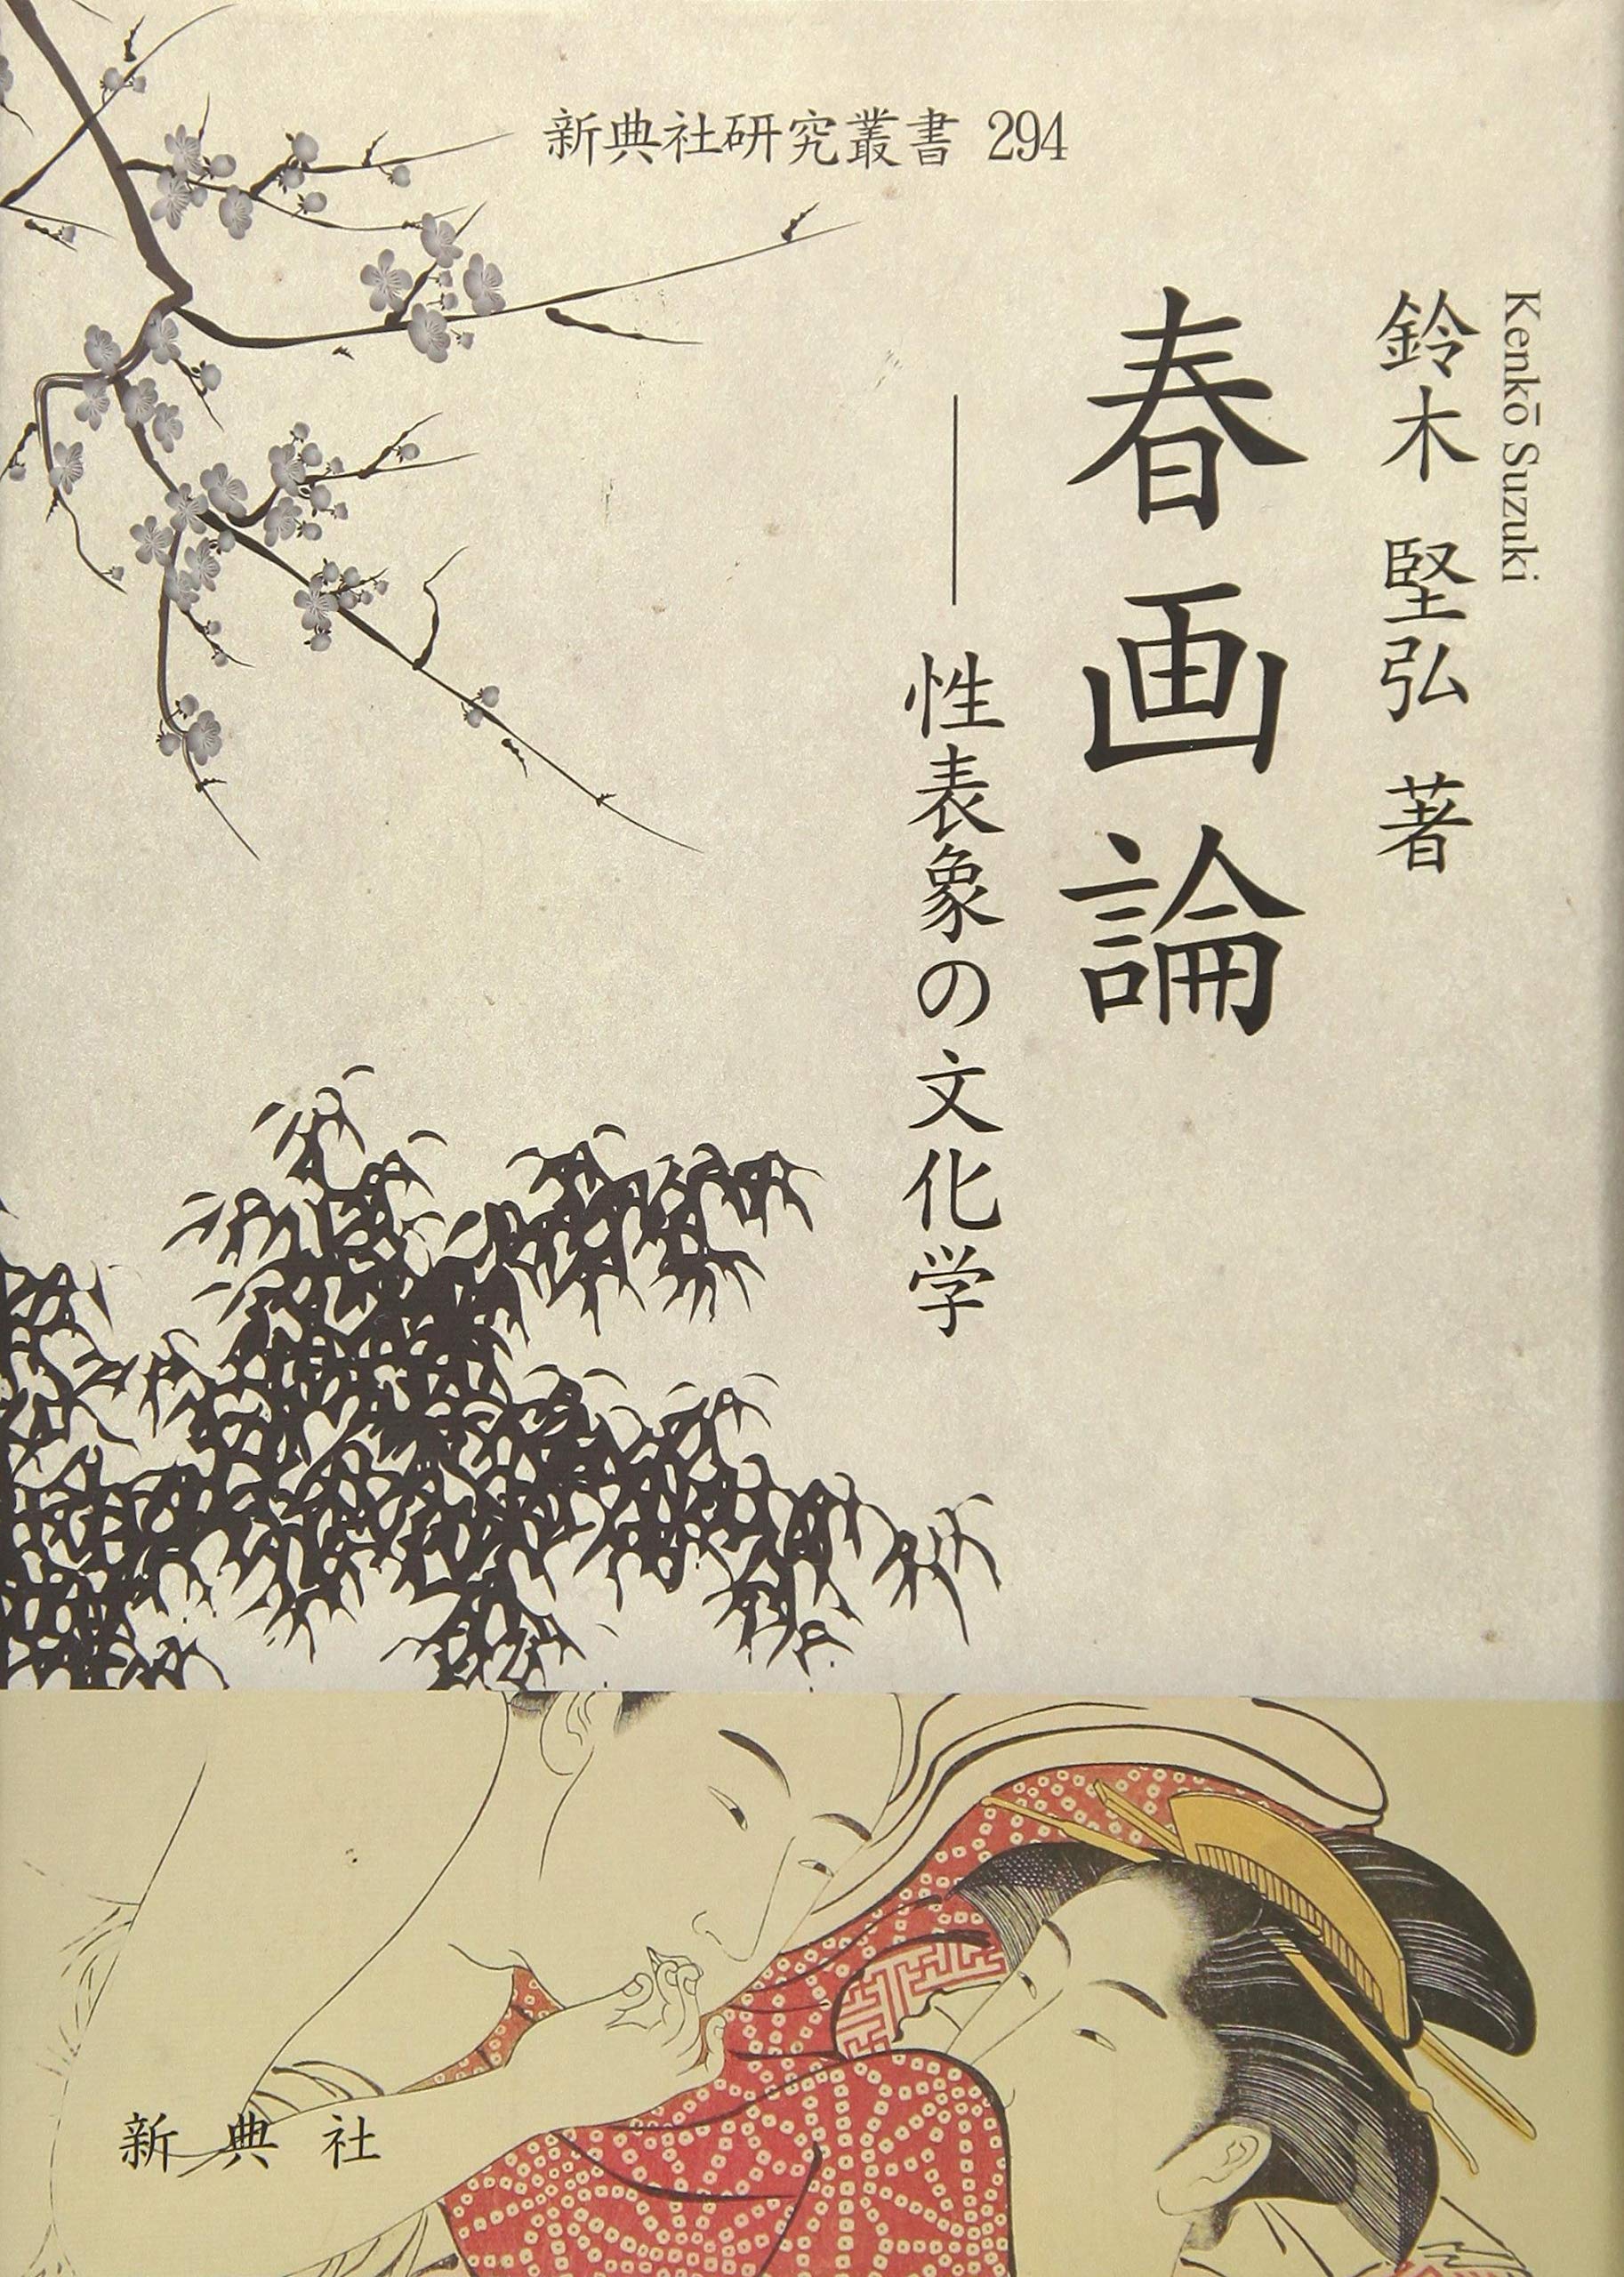 新典社研究叢書 294
Kenkō Suzuki
鈴木 堅弘 著
春画論
―性表象の文化学
新典社